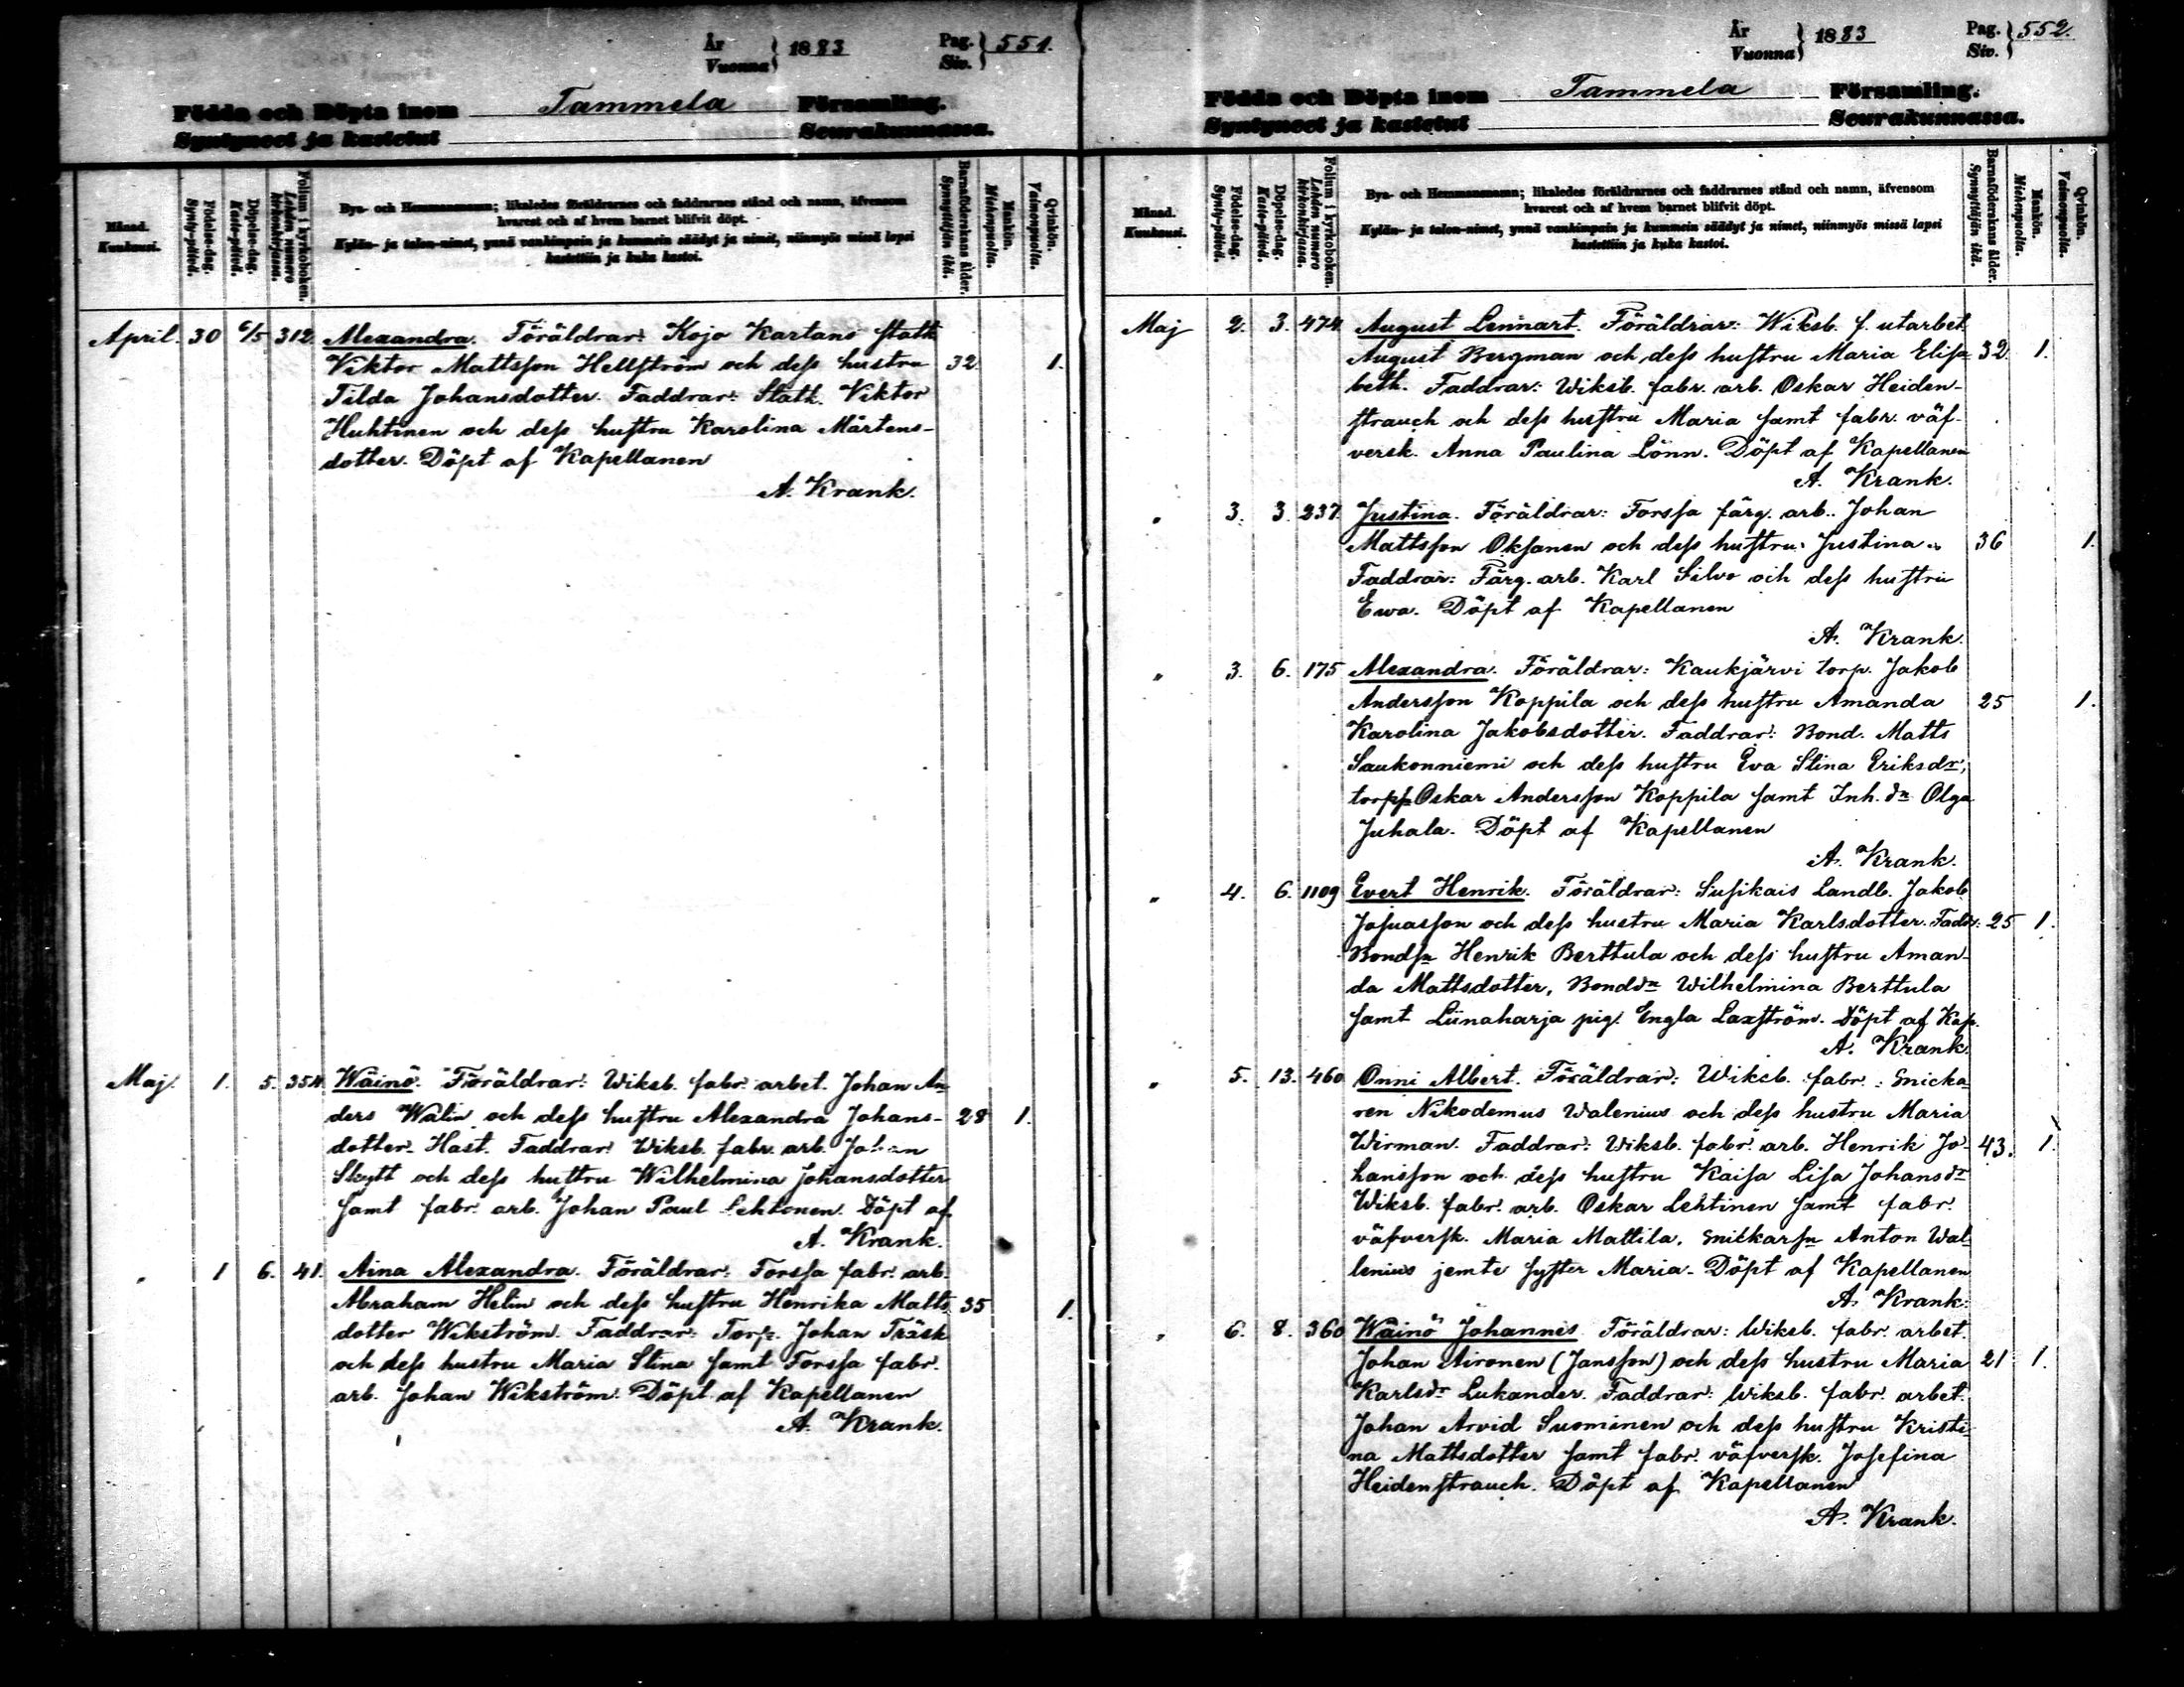 År
Vuonna
1883
Pag.
Siv.
551.
Födda och Döpta inom Tammela Församling.
Syntyneet ja kastetut Seurakunnassa.
Månad.
Kuukausi.
Födelse-dag.
Synty-päivä.
Döpelse-dag.
Kaste-päivä.
Folium i kyrkoboken.
Lehden numero kirkonkirjassa.
Bya- och Hemmansnamn; likaledes föräldrarnes och faddrarnes stånd och namn, äfvensom
hvarest och af hvem barnet blifvit döpt.
Kylän- ja talon-nimet, ynnä vanhimpain ja kummein säädyt ja nimet, niinmyös missä lapsi
kastettiin ja kuka kastoi.
Barnaföderskans ålder.
Synnyttäjän ikä.
Mankön.
Miehenpuolta.
Qvinkön.
Vaimonpuolta.
April. 30 6/5 312. Alexandra. Föräldrar: Kojo Kartano stath
Viktor Mattsson Hellström och dess hustru 32. 1.
Tilda Johansdotter. Faddrar: Stath. Viktor
Huhtinen och dess hustru Karolina Mårtens-
dotter. Döpt af Kapellanen
A. Krank.
Maj. 1. 5. 354. Wäinö. Föräldrar: Wiksb. fabr. arbet. Johan An-
ders Walin och dess hustru Alexandra Johans- 28 1.
dotter Hast. Faddrar: Wiksb. fabr. arb. Johan
Skytt och dess hustru Wilhelmina Johansdotter
samt fabr. arb. Johan Paul Lehtonen. Döpt af
A. Krank.
" 1 6. 41. Aina Alexandra. Föräldrar: Forssa fabr. arb.
Abraham Helin och dess hustru Henrika Matts 35 1.
dotter Wikström. Faddrar: Torp. Johan Träsk
och dess hustru Maria Stina samt Forssa fabr.
arb. Johan Wikström. Döpt af Kapellanen
A. Krank.
År
Vuonna
1883
Pag.
Siv.
552.
Födda och Döpta inom Tammela Församling.
Syntyneet ja kastetut Seurakunnassa.
Månad.
Kuukausi.
Födelse-dag.
Synty-päivä.
Döpelse-dag.
Kaste-päivä.
Folium i kyrkoboken.
Lehden numero kirkonkirjassa.
Bya- och Hemmansnamn; likaledes föräldrarnes och faddrarnes stånd och namn, äfvensom
hvarest och af hvem barnet blifvit döpt.
Kylän- ja talon-nimet, ynnä vanhimpain ja kummein säädyt ja nimet, niinmyös missä lapsi
kastettiin ja kuka kastoi.
Barnaföderskans ålder.
Synnyttäjän ikä.
Mankön.
Miehenpuolta.
Qvinkön.
Vaimonpuolta.
Maj 2. 3. 474. August Lennart. Föräldrar: Wiksb. f. utarbet.
August Bergman och dess hustru Maria Elisa- 32. 1.
beth. Faddrar: Wiksb. fabr. arb. Oskar Heiden-
strauch och dess hustru Maria samt fabr. väf-
versk. Anna Paulina Lönn. Döpt af Kapellanen
A. Krank.
" 3. 3. 237. Justina. Föräldrar: Forssa färg. arb. Johan
Mattsson Oksanen och dess hustru Justina. 36 1.
Faddrar: Färg. arb. Karl Silvo och dess hustru
Ewa. Döpt af Kapellanen
A. Krank.
" 3. 6. 175 Alexandra. Föräldrar: Kaukjärvi torp. Jakob
Andersson Koppila och dess hustru Amanda 25 1.
Karolina Jakobsdotter. Faddrar: Bond. Matts
Saukonniemi och dess hustru Eva Stina Eriksdr,
torps. Oskar Andersson Koppila samt Inh. dr Olga
Juhala. Döpt af Kapellanen
A. Krank.
" 4. 6. 1109 Evert Henrik. Föräldrar: Susikais Landb. Jakob
Josuasson och dess hustru Maria Karlsdotter. Faddr: 25 1.
Bondsn Henrik Berttula och dess hustru Aman-
da Mattsdotter, Bonddr Wilhelmina Berttula
samt Liinaharja pig. Engla Laxström. Döpt af Kap.
A. Krank.
" 5. 13. 460 Onni Albert. Föräldrar: Wiksb. fabr. Snicka-
ren Nikodemus Walenius och dess hustru Maria
Wirman. Faddrar: Wiksb. fabr. arb. Henrik Jo- 43. 1.
hansson och dess hustru Kaisa Lisa Johansdr
Wiksb. fabr. arb. Oskar Lehtinen samt fabr.
väfversk. Maria Mattila, Snickarsn Anton Wal-
lenius jemte syster Maria. Döpt af Kapellanen
A. Krank.
" 6. 8. 360 Wäinö Johannes. Föräldrar: Wiksb. fabr. arbet.
Johan Aironen (Jansson) och dess hustru Maria 21 1.
Karlsdr Lukander. Faddrar: Wiksb. fabr. arbet.
Johan Arvid Suominen och dess hustru Kristi-
na Mattsdotter samt fabr. väfversk. Josefina
Heidenstrauch. Döpt af Kapellanen
A. Krank.